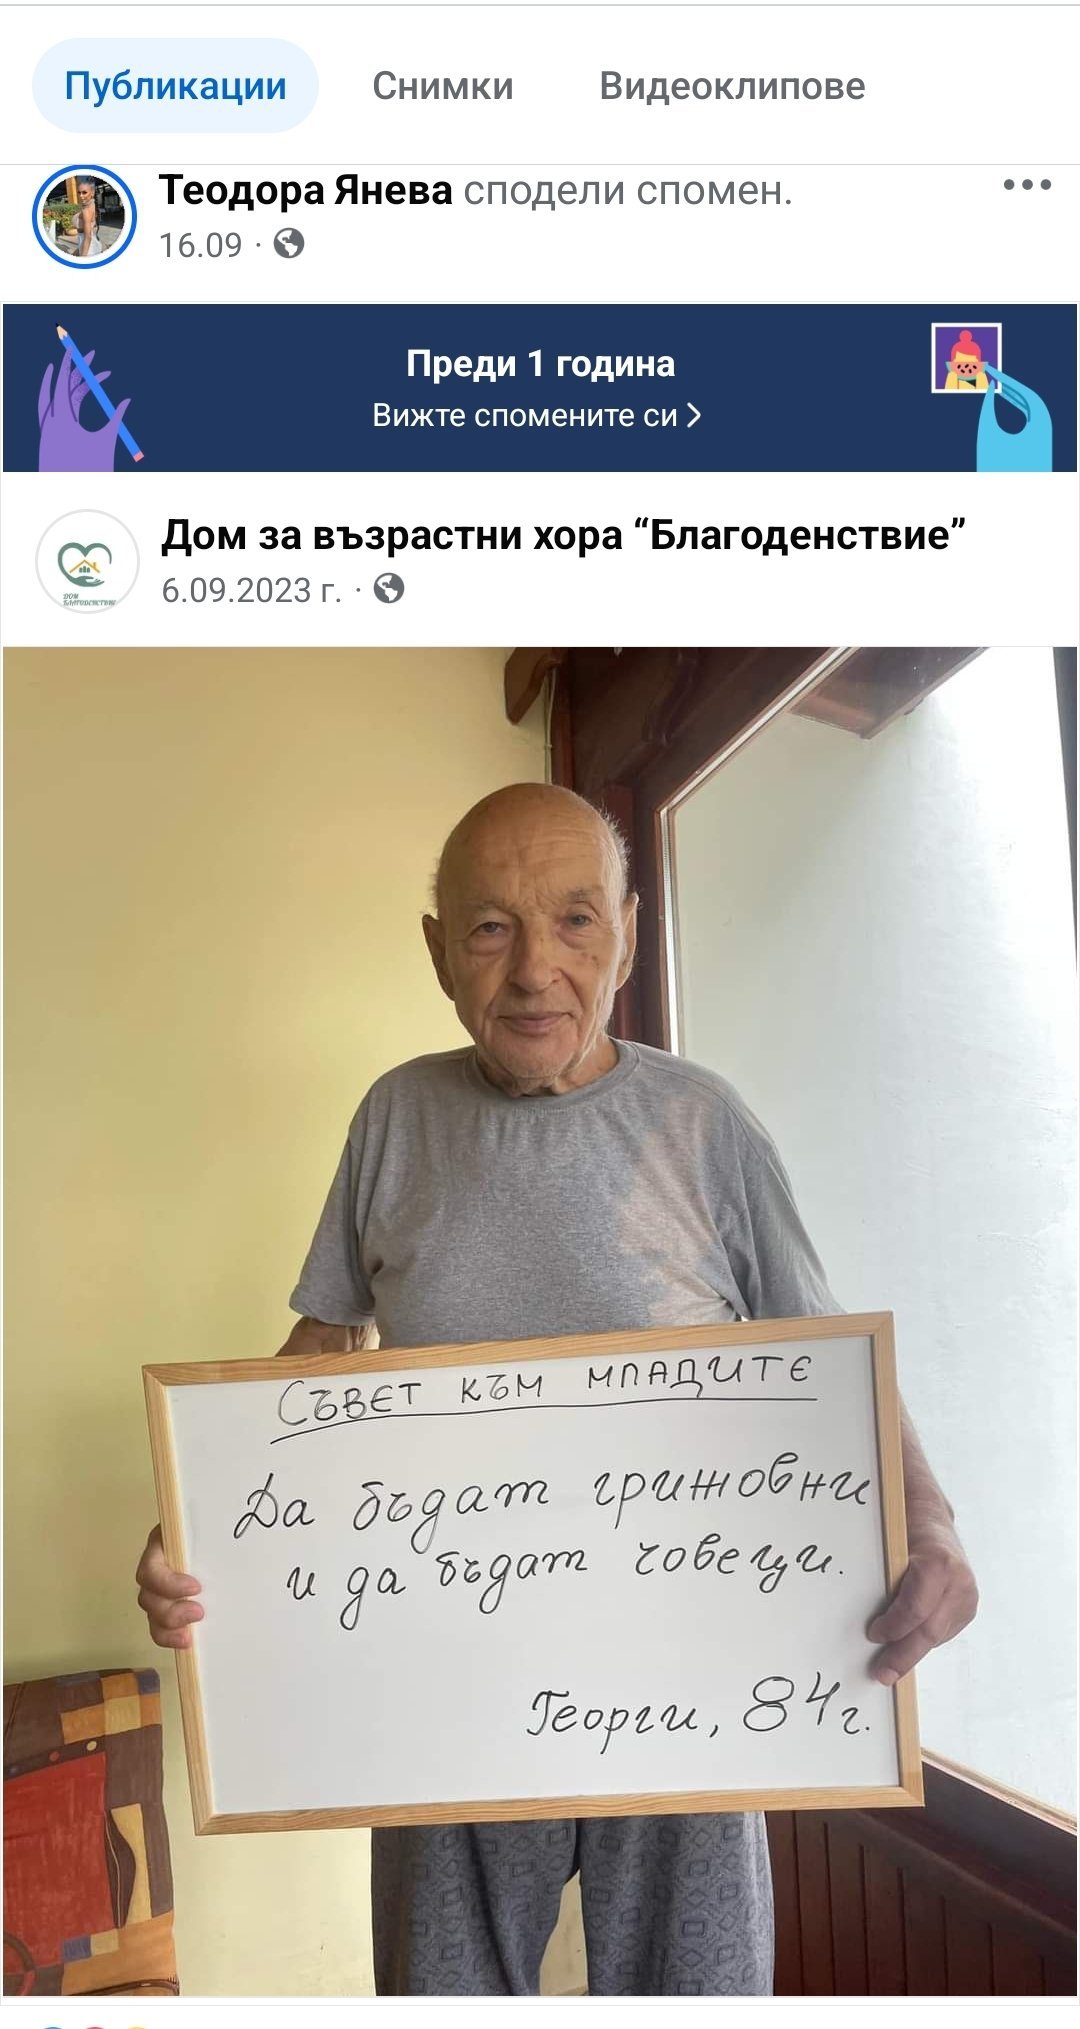 Публикации Снимки Видеоклипове
Теодора Янева сподели спомен.
16.09 ·
Преди 1 година
Вижте спомените си
Дом за възрастни хора “Благоденствие”
6.09.2023 г. ·
ДОМ
БЛАГОДЕНСТВИЕ
СЪВЕТ КЪМ МЛАДИТЕ
Да бъдат грижовни
и да бъдат човеци.
Георги, 84г.